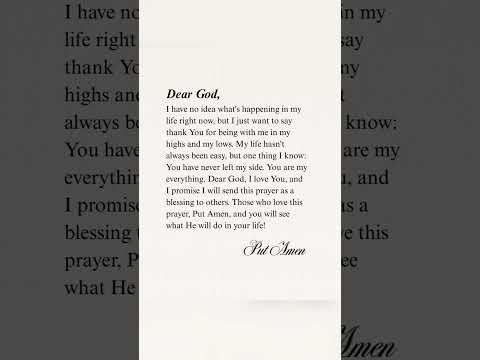 Dear God,
I have no idea what's happening in my
life right now, but I just want to say
thank You for being with me in my
highs and my lows. My life hasn't
always been easy, but one thing I know:
You have never left my side. You are my
everything. Dear God, I love You, and
I promise I will send this prayer as a
blessing to others. Those who love this
prayer, Put Amen, and you will see
what He will do in your life!
Put Amen